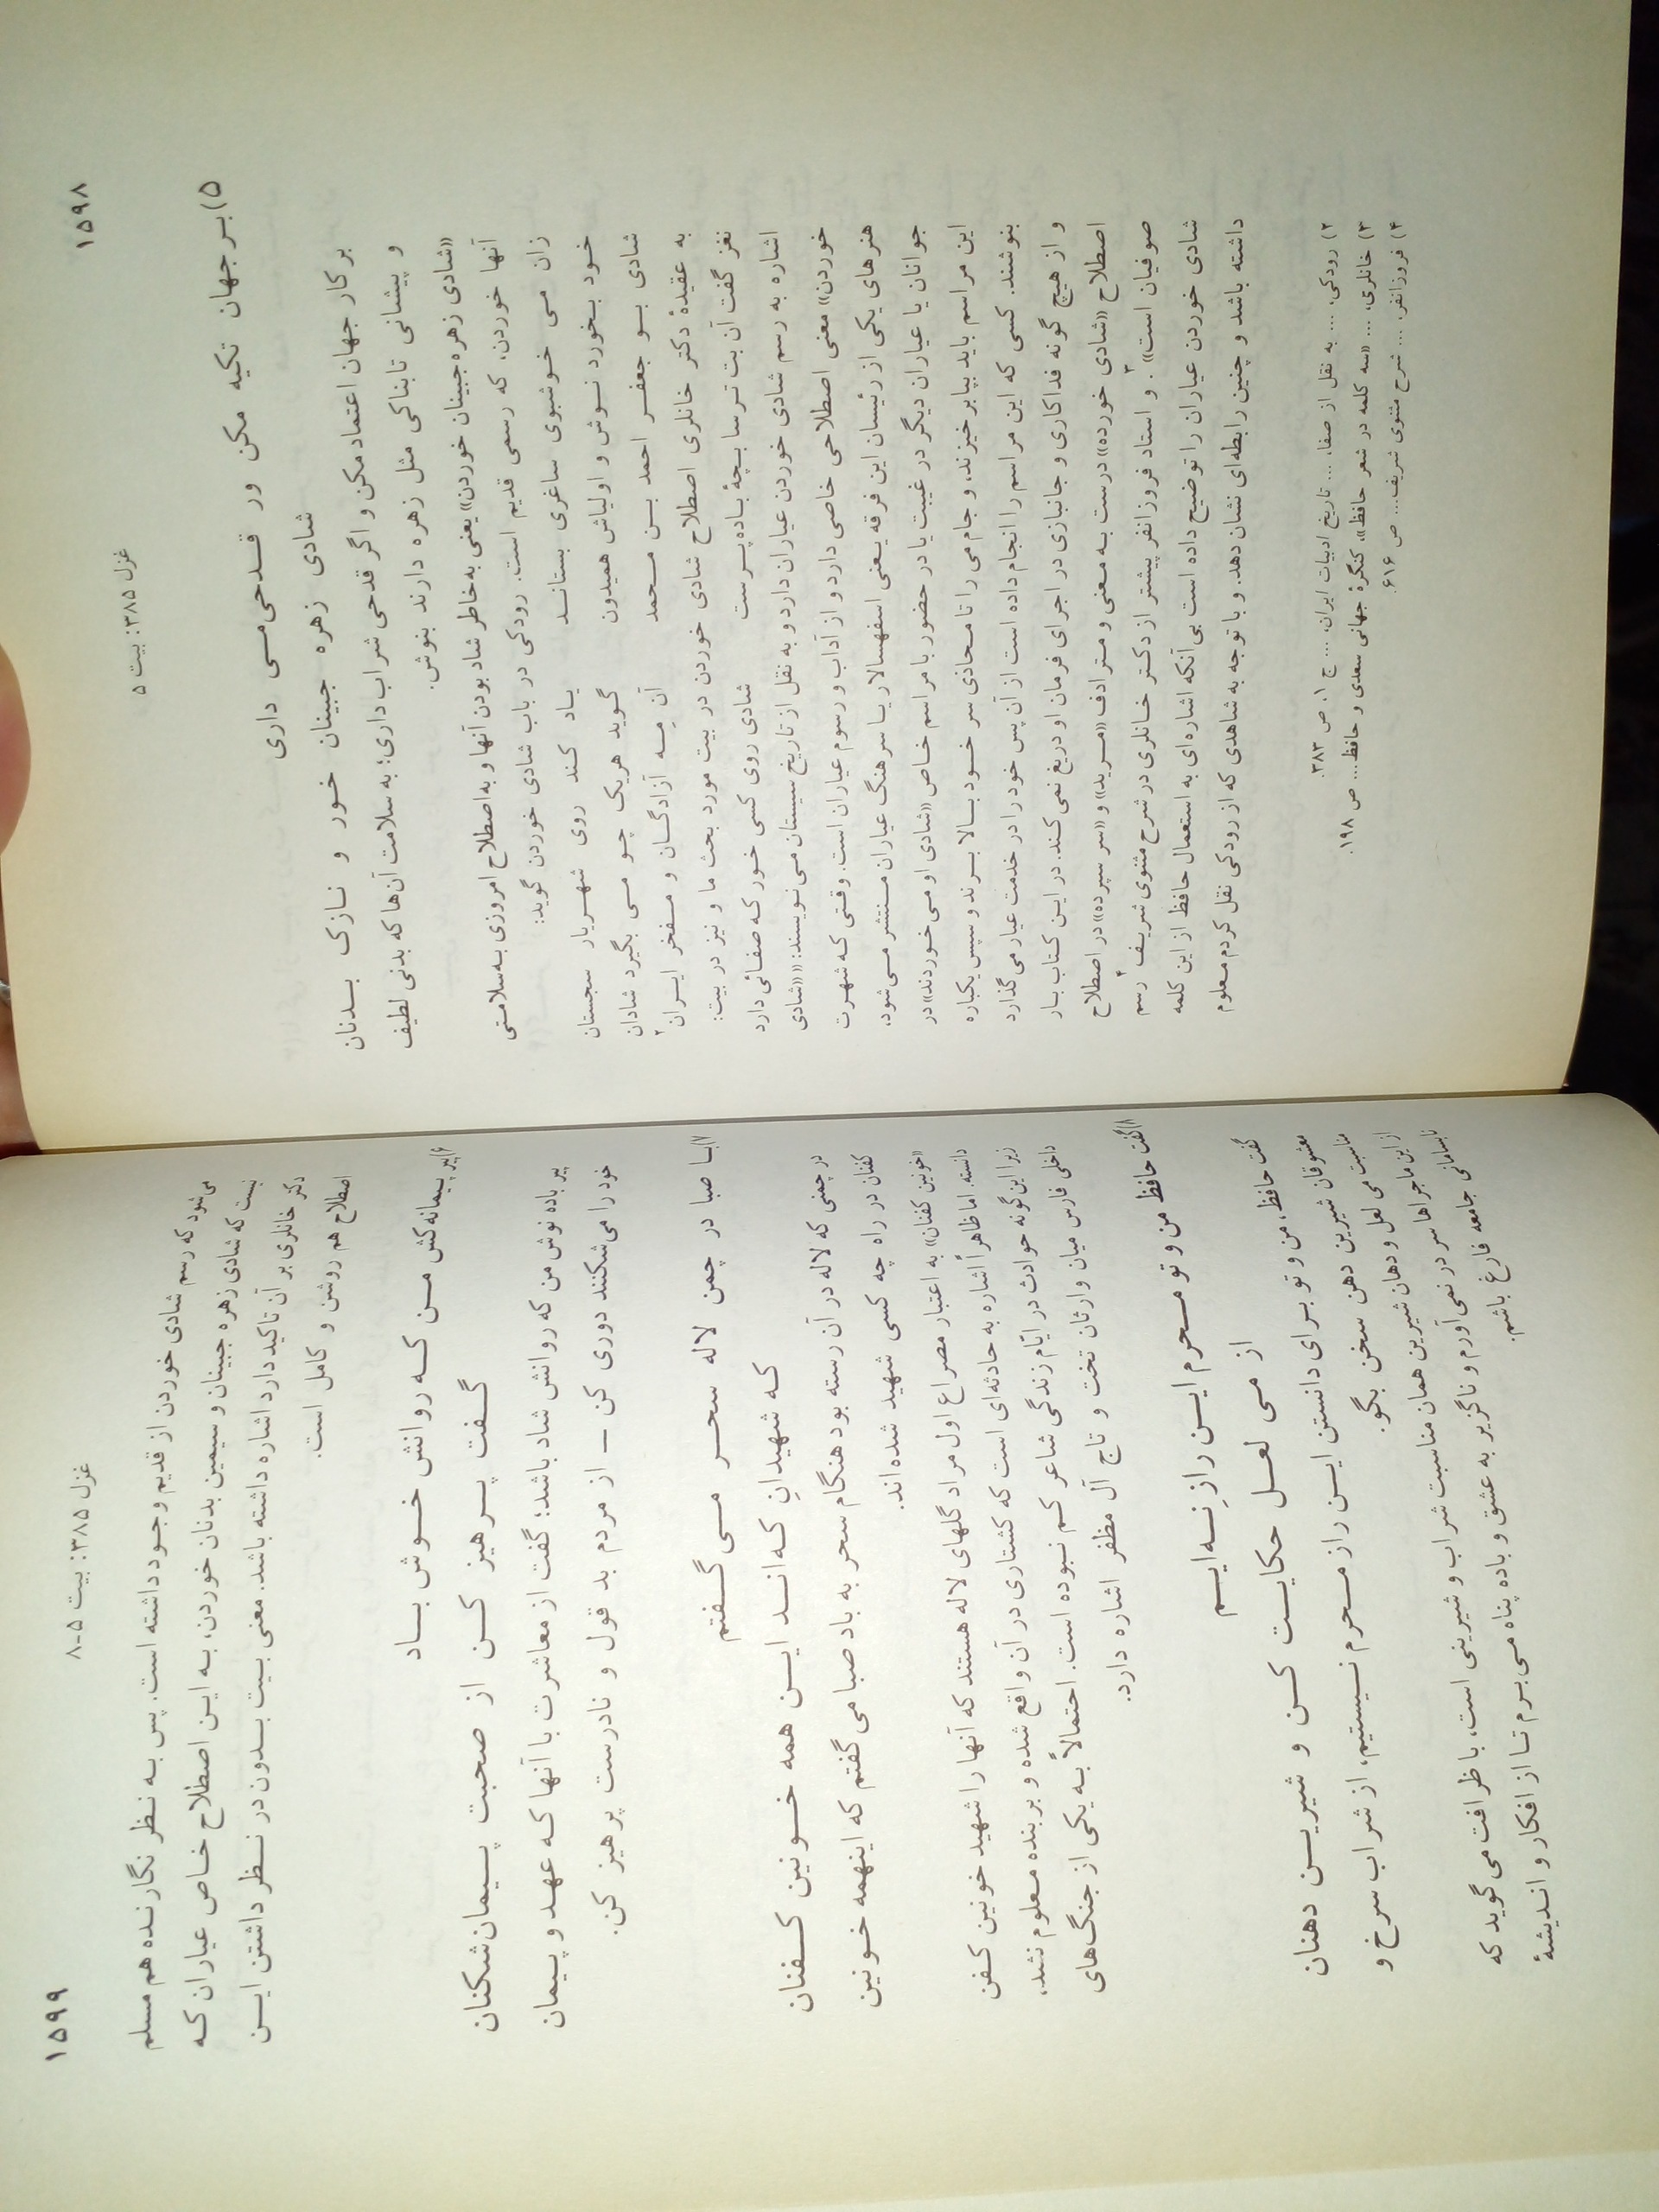 ۱۵۹۸
غزل ۳۸۵: بیت ۵
۵) بر جهان تکیه مکن ور قدحی می داری
شادی زهره جبینان خور و نازک بدنان
بر کار جهان اعتماد مکن و اگر قدحی شراب داری؛ به سلامت آن‌ها که بدنی لطیف
و پیشانی تابناکی مثل زهره دارند بنوش.
«شادی زهره جبینان خوردن» یعنی به خاطر شاد بودن آنها و به اصطلاح امروزی به سلامتی
آنها خوردن، که رسمی قدیم است. رودکی در باب شادی خوردن گوید:
زان می خوشبوی ساغری بستاند یاد کند روی شهریار سجستان
خود بخورد نوش و اولیاش همیدون گوید هریک چو می بگیرد شادان
شادی بو جعفر احمد بن محمد آن مِه آزادگان و مفخر ایران۲
به عقیدهٔ دکتر خانلری اصطلاح شادی خوردن در بیت مورد بحث ما و نیز در بیت:
نغز گفت آن بت ترسا بچهٔ باده‌پرست شادی روی کسی خور که صفائی دارد
اشاره به رسم شادی خوردن عیاران دارد و به نقل از تاریخ سیستان می‌نویسند: «شادی
خوردن» معنی اصطلاحی خاصی دارد و از آداب و رسوم عیاران است. وقتی که شهرت
هنرهای یکی از رئیسان این فرقه یعنی اسفهسالار یا سرهنگ عیاران منتشر می‌شود،
جوانان یا عیاران دیگر در غیبت یا در حضور با مراسم خاص «شادی او می‌خوردند» در
این مراسم باید بپا برخیزند، و جام می را تا محاذی سر خود بالا برند و سپس یکباره
بنوشند. کسی که این مراسم را انجام داده است از آن پس خود را در خدمت عیار می‌گذارد
و از هیچ گونه فداکاری و جانبازی در اجرای فرمان او دریغ نمی‌کند. در این کتاب بار
اصطلاح «شادی خورده» درست به معنی و مترادف «مرید» و «سر سپرده» در اصطلاح
صوفیان است»۳. و استاد فروزانفر پیشتر از دکتر خانلری در شرح مثنوی شریف۴ رسم
شادی خوردن عیاران را توضیح داده است بی‌آنکه اشاره‌ای به استعمال حافظ از این کلمه
داشته باشد و چنین رابطه‌ای نشان دهد. و با توجه به شاهدی که از رودکی نقل کردم معلوم
۲) رودکی، ... به نقل از صفا، ... تاریخ ادبیات ایران، ... ج ۱. ص ۳۸۳.
۳) خانلری، ... «سه کلمه در شعر حافظ»، کنگرهٔ جهانی سعدی و حافظ... ص ۱۹۸.
۴) فروزانفر، ... شرح مثنوی شریف... ص ۶۱۶.
۱۵۹۹
غزل ۳۸۵: بیت ۵-۸
می‌شود که رسم شادی خوردن از قدیم وجود داشته است. پس به نظر نگارنده هم مسلم
نیست که شادی زهره جبینان و سیمین بدنان خوردن، به این اصطلاح خاص عیاران که
دکتر خانلری بر آن تاکید دارد اشاره داشته باشد. معنی بیت بدون در نظر داشتن این
اصطلاح هم روشن و کامل است.
۶) پیر پیمانه‌کش من که روانش خوش باد
گفت پرهیز کن از صحبت پیمان‌شکنان
پیر باده نوش من که روانش شاد باشد؛ گفت از معاشرت با آنها که عهد و پیمان
خود را می‌شکنند دوری کن – از مردم بد قول و نادرست پرهیز کن.
۷) با صبا در چمن لاله سحر می‌گفتم
که شهیدانِ که‌اند این همه خونین کفنان
در چمنی که لاله در آن رسته بود هنگام سحر به باد صبا می گفتم که اینهمه خونین
کفنان در راه چه کسی شهید شده‌اند.
«خونین کفنان» به اعتبار مصراع اول مراد گلهای لاله هستند که آنها را شهید خونین کفن
دانسته اما ظاهراً اشاره به حادثه‌ای است که کشتاری در آن واقع شده و بر بنده معلوم نشد،
زیرا این گونه حوادث در ایّام زندگی شاعر کم نبوده است. احتمالاً به یکی از جنگ‌های
داخلی فارس میان وارثان تخت و تاج آل مظفر اشاره دارد.
۸) گفت حافظ من و تو محرم این راز نه‌ایم
از می لعل حکایت کن و شیرین دهنان
گفت حافظ، من و تو برای دانستن این راز محرم نیستیم، از شراب سرخ و
معشوقان شیرین دهن سخن بگو.
مناسبت می لعل و دهان شیرین همان مناسبت شراب و شیرینی است، با ظرافت می گوید که
از این ماجراها سر در نمی‌آورم و ناگزیر به عشق و باده پناه می‌برم تا از افکار و اندیشهٔ
نابسامانی جامعه فارغ باشم.